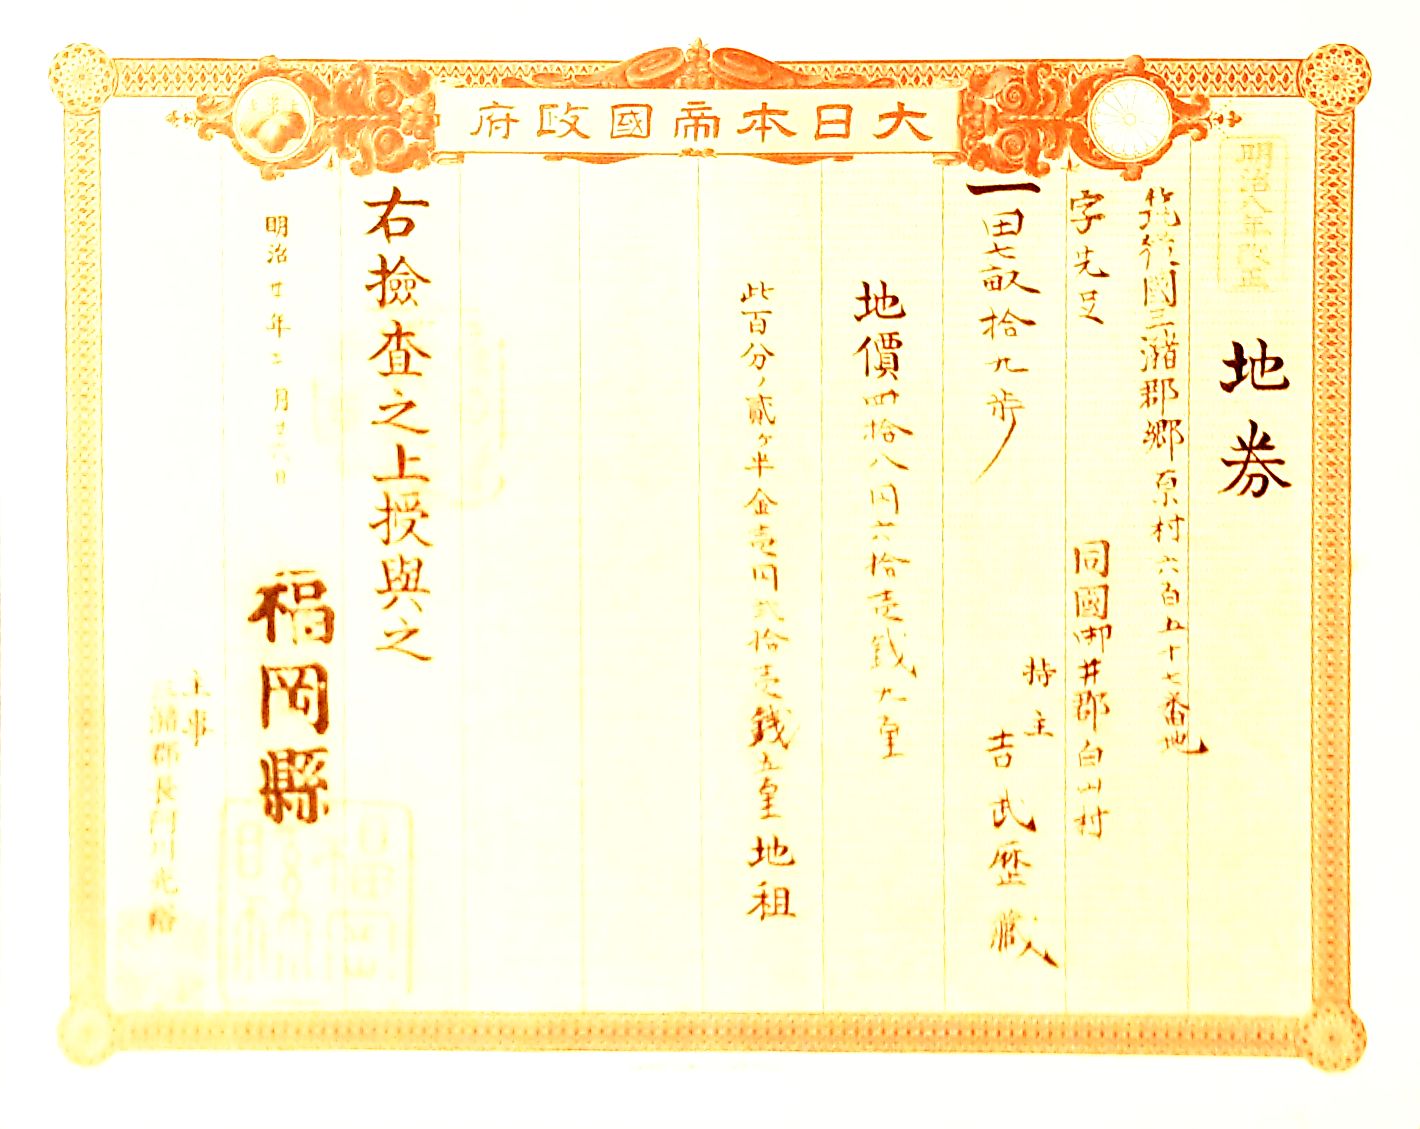 大日本帝國政府
明治八年改正
地券
筑後國三潴郡郷原村六百五十七番地
字先足
同國御井郡白山村
持主
吉武歴蔵
一田七畝拾九歩
地價四拾八円六拾壱銭九厘
此百分ノ貳ケ半金壱円貳拾壱銭五厘地租
右撿査之上授與之
明治廿年二月廿八日
福岡縣
主事
潴郡長